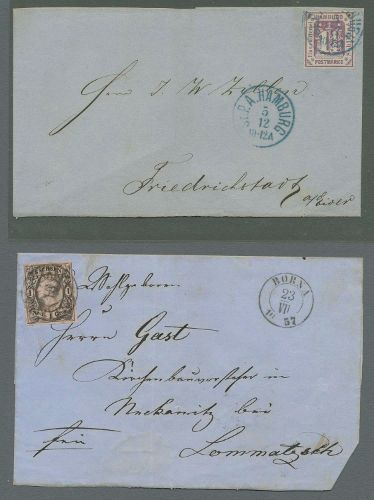 HAMBURG
POSTMARKE
St.P.A. HAMBURG
5
12
10-12A
Herr J. W.
Friedrichstadt
a/Eider
Wohlgeboren
BORNA
23
VII
57
Herrn Gast
Kirchenbauvorsteher in
Neckanitz bei
frei
Lommatzsch